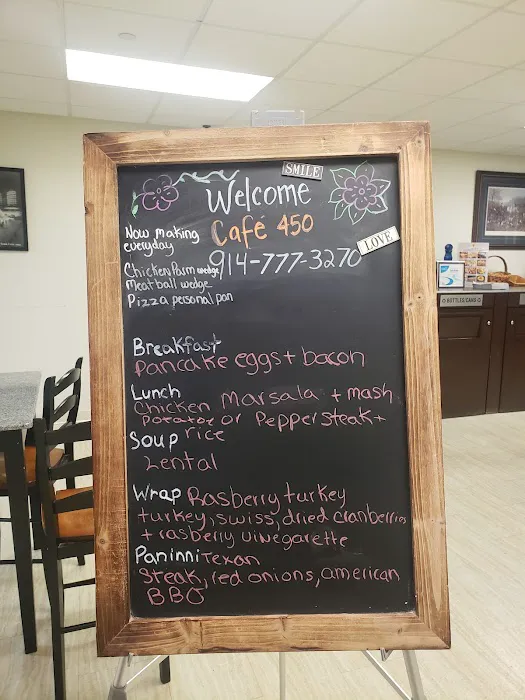 SMILE
Welcome
Café 450
LOVE
914-777-3270
Now making
everyday
Chicken Parm wedge
Meatball wedge
Pizza personal pan
Breakfast
Pancake eggs + bacon
Lunch
Chicken Marsala + mash
potatoe or Pepper steak +
rice
Soup
Lental
Wrap Rasberry turkey
turkey, swiss, dried cranberries
+ rasberry vinegarette
Paninni Texan
Steak, red onions, american
BBQ
BOTTLES/CANS